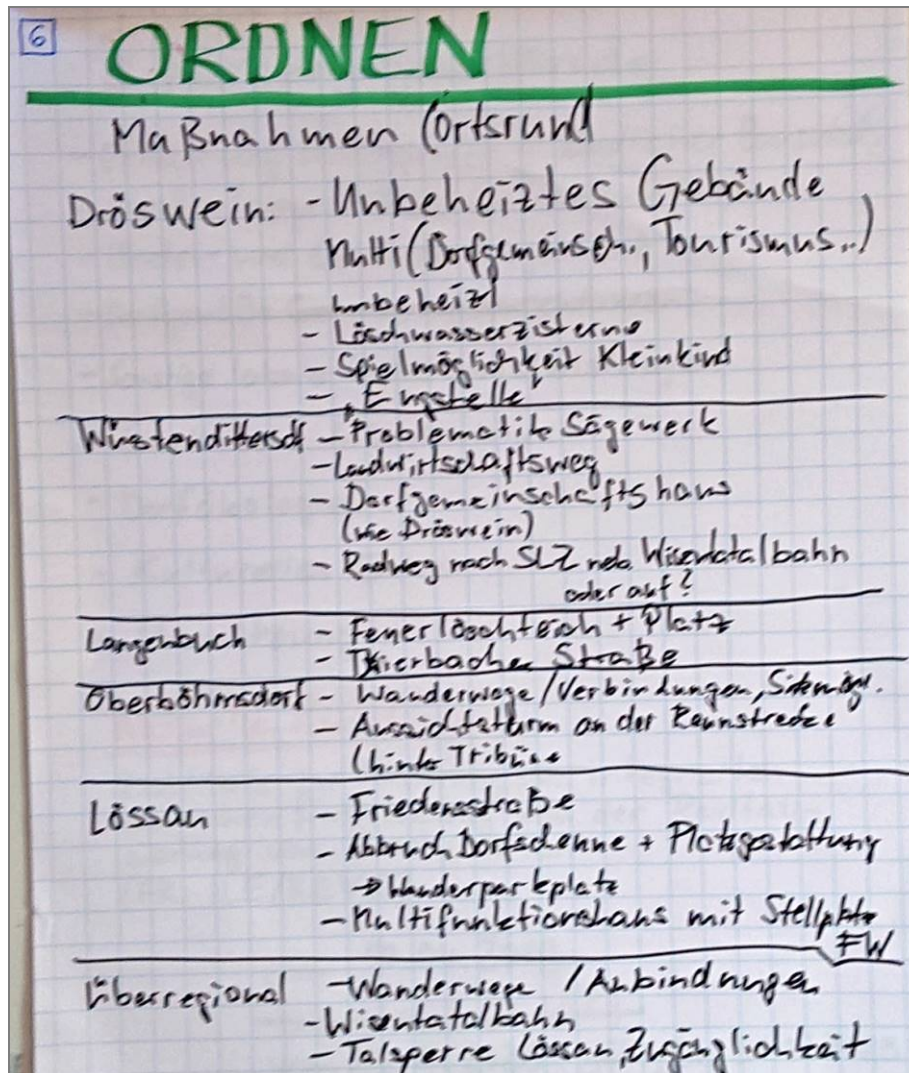 6
ORDNEN
Maßnahmen (Ortsrund
Dröswein: - Unbeheiztes Gebäude
Multi (Dorfgemeinsch., Tourismus..)
unbeheizt
- Löschwasserzisterne
- Spielmöglichkeit Kleinkind
- "Engstelle"
Wüstendittersdf - Problematik Sägewerk
- Landwirtschaftsweg
- Dorfgemeinschaftshaus
(wie Dröswein)
- Radweg nach SLZ neb. Wisentatalbahn
oder auf?
Langenbuch - Feuerlöschteich + Platz
- Dierbacher Straße
Oberböhmsdorf - Wanderwege/Verbindungen, Sitzmögl.
- Aussichtsturm an der Rennstrecke
(hinter Tribüne
Lössau - Friedensstraße
- Abbruch Dorfscheune + Platzgestaltung
→ Wanderparkplatz
- Multifunktionshaus mit Stellplatz
FW
überregional - Wanderwege / Anbindungen
- Wisentatalbahn
- Talsperre Lössau, Zugänglichkeit